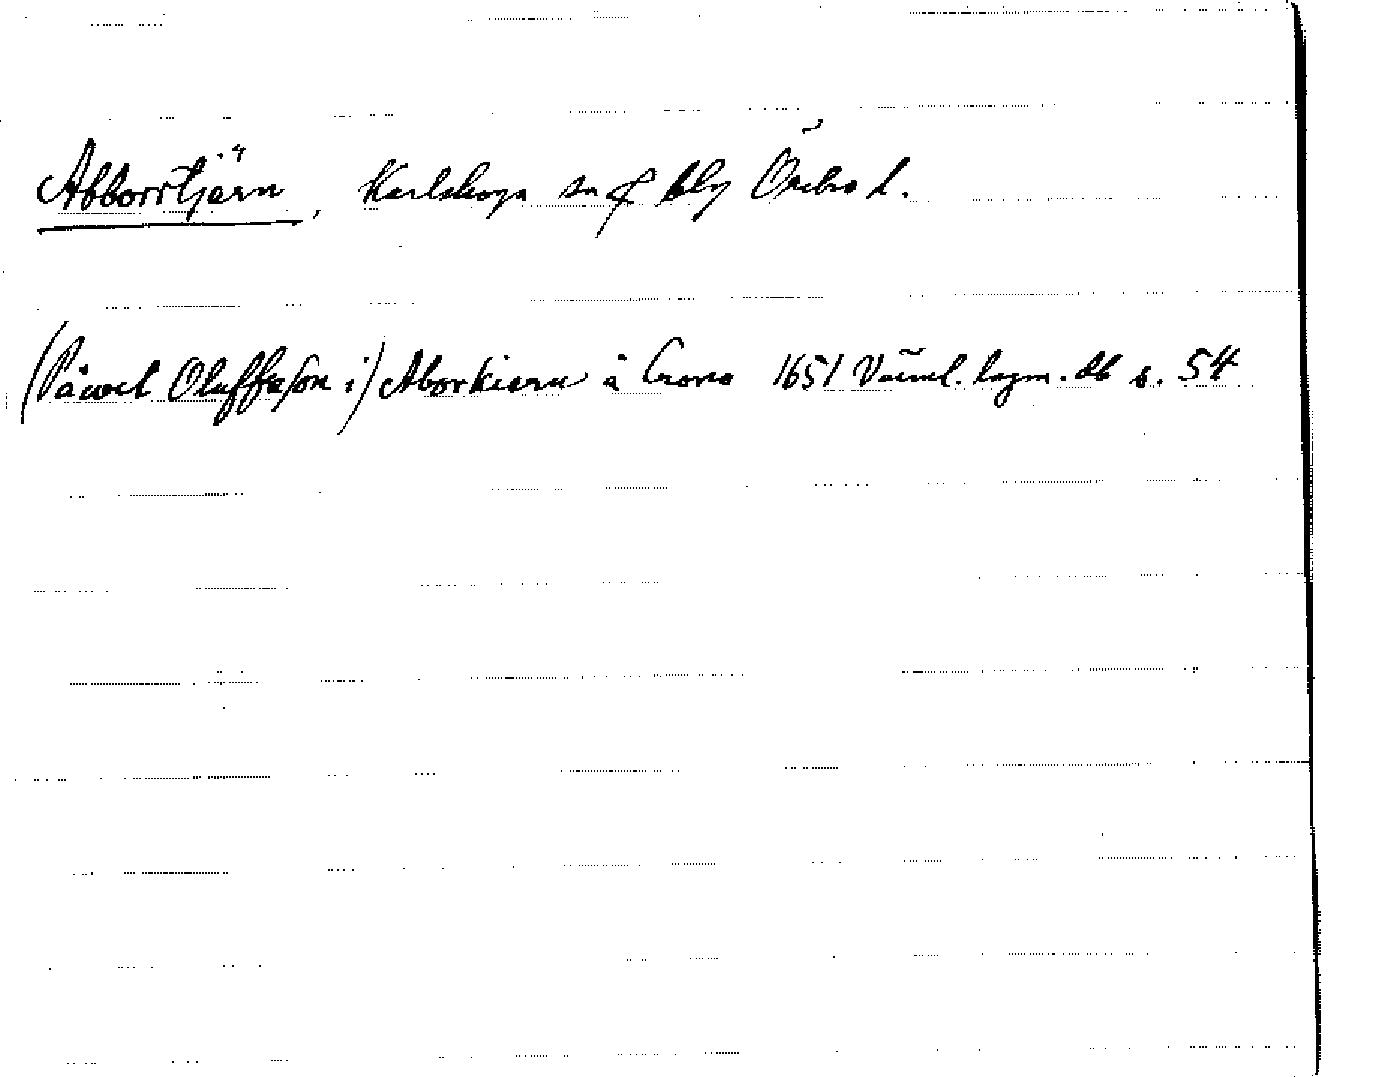 Abborrtjärn, Karlskoga sn o blg Örebro l.
(Påwel Oluffsson i) Aborkiern å Crono 1651 Värml. lagm. db s. 54